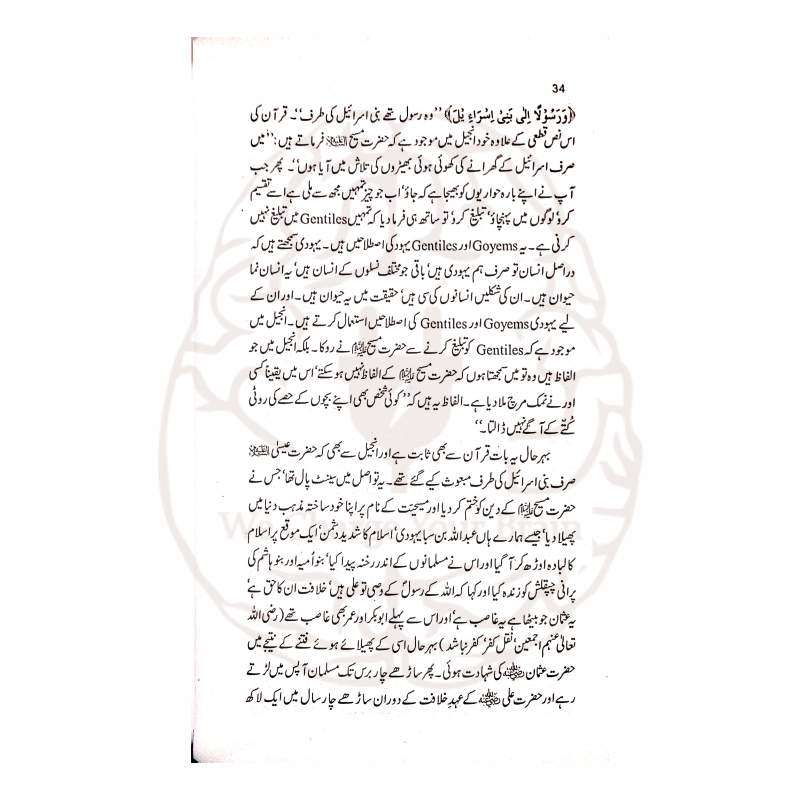 34
﴿وَرَسُوْلًا اِلٰى بَنِىْ اِسْرَاءِ يْلَ﴾ ’’وہ رسول تھے بنی اسرائیل کی طرف‘‘۔ قرآن کی
اس نص قطعی کے علاوہ خود انجیل میں موجود ہے کہ حضرت مسیح علیہ السلام فرماتے ہیں: ’’میں
صرف اسرائیل کے گھرانے کی کھوئی ہوئی بھیڑوں کی تلاش میں آیا ہوں‘‘۔ پھر جب
آپ نے اپنے بارہ حواریوں کو بھیجا ہے کہ جاؤ‘ اب جو چیز تمہیں مجھ سے ملی ہے اسے تقسیم
کرو‘ لوگوں میں پہنچاؤ‘ تبلیغ کرو‘ تو ساتھ ہی فرما دیا کہ تمہیں Gentiles میں تبلیغ نہیں
کرنی ہے۔ یہ Goyems اور Gentiles یہود کی اصطلاحیں ہیں۔ یہودی سمجھتے ہیں کہ
دراصل انسان تو صرف ہم یہودی ہیں‘ باقی جو مختلف نسلوں کے انسان ہیں‘ یہ انسان نما
حیوان ہیں۔ ان کی شکلیں انسانوں کی سی ہیں‘ حقیقت میں یہ حیوان ہیں۔ اور ان کے
لیے یہودی Goyems اور Gentiles کی اصطلاحیں استعمال کرتے ہیں۔ انجیل میں
موجود ہے کہ Gentiles کو تبلیغ کرنے سے حضرت مسیح علیہ السلام نے روکا۔ بلکہ انجیل میں جو
الفاظ ہیں وہ تو میں سمجھتا ہوں کہ حضرت مسیح علیہ السلام کے الفاظ نہیں ہو سکتے‘ اس میں یقیناً کسی
اور نے نمک مرچ ملا دیا ہے۔ الفاظ یہ ہیں کہ ’’کوئی شخص بھی اپنے بچوں کے حصے کی روٹی
کُتّے کے آگے نہیں ڈالتا۔‘‘
بہرحال یہ بات قرآن سے بھی ثابت ہے اور انجیل سے بھی کہ حضرت عیسیٰ علیہ السلام
صرف بنی اسرائیل کی طرف مبعوث کیے گئے تھے۔ یہ تو اصل میں سینٹ پال تھا‘ جس نے
حضرت مسیح علیہ السلام کے دین کو ختم کر دیا اور مسیحیت کے نام پر اپنا خود ساختہ مذہب دنیا میں
پھیلا دیا‘ جیسے ہمارے ہاں عبداللہ بن سبا یہودی‘ اسلام کا شدید دشمن‘ ایک موقع پر اسلام
کا لبادہ اوڑھ کر آ گیا اور اس نے مسلمانوں کے اندر رخنہ پیدا کیا‘ بنو اُمیہ اور بنو ہاشم کی
پرانی چپقلش کو زندہ کیا اور کہا کہ اللہ کے رسول کے وصی تو علی ہیں‘ خلافت ان کا حق ہے‘
یہ عثمان جو بیٹھا ہے یہ غاصب ہے‘ اور اس سے پہلے ابوبکر اور عمر بھی غاصب تھے (رضی اللہ
تعالیٰ عنہم اجمعین‘ نقل کفر‘ کفر نباشد) بہرحال اسی کے پھیلائے ہوئے فتنے کے نتیجے میں
حضرت عثمان رضی اللہ عنہ کی شہادت ہوئی۔ پھر ساڑھے چار برس تک مسلمان آپس میں لڑتے
رہے اور حضرت علی رضی اللہ عنہ کے عہدِ خلافت کے دوران ساڑھے چار سال میں ایک لاکھ